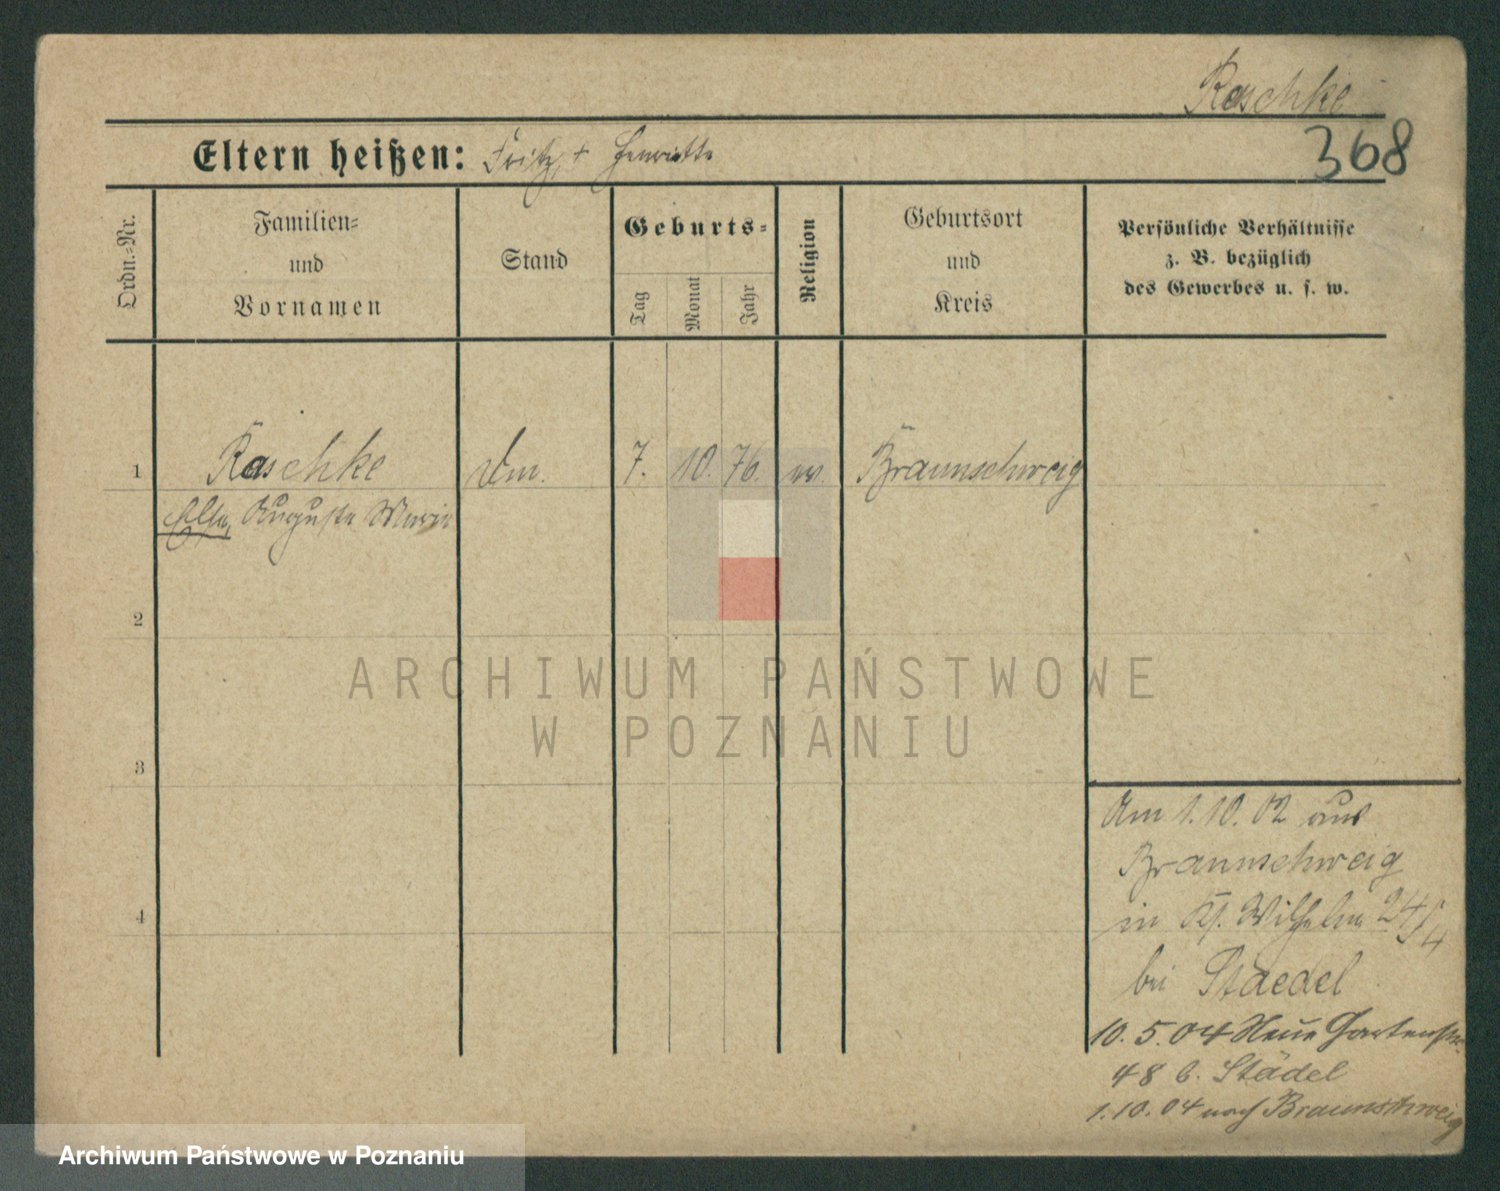 Raschke
368
Eltern heißen: Fritz + Henriette
Ordn.-Nr.
Familien-
und
Vornamen
Stand
Geburts-
Tag
Monat
Jahr
Religion
Geburtsort
und
Kreis
Persönliche Verhältnisse
z. B. bezüglich
des Gewerbes u. s. w.
1 Raschke 7. 10. 76. Braunschweig
Auguste Marie
2
3
4
Am 1.10.02 aus
Braunschweig
in Kl. Wilhelm 24/4
bei Staedel
10.5.04 Neue Gartenstr.
48 b. Städel
1.10.04 nach Braunschweig
ARCHIWUM PAŃSTWOWE
W POZNANIU
Archiwum Państwowe w Poznaniu